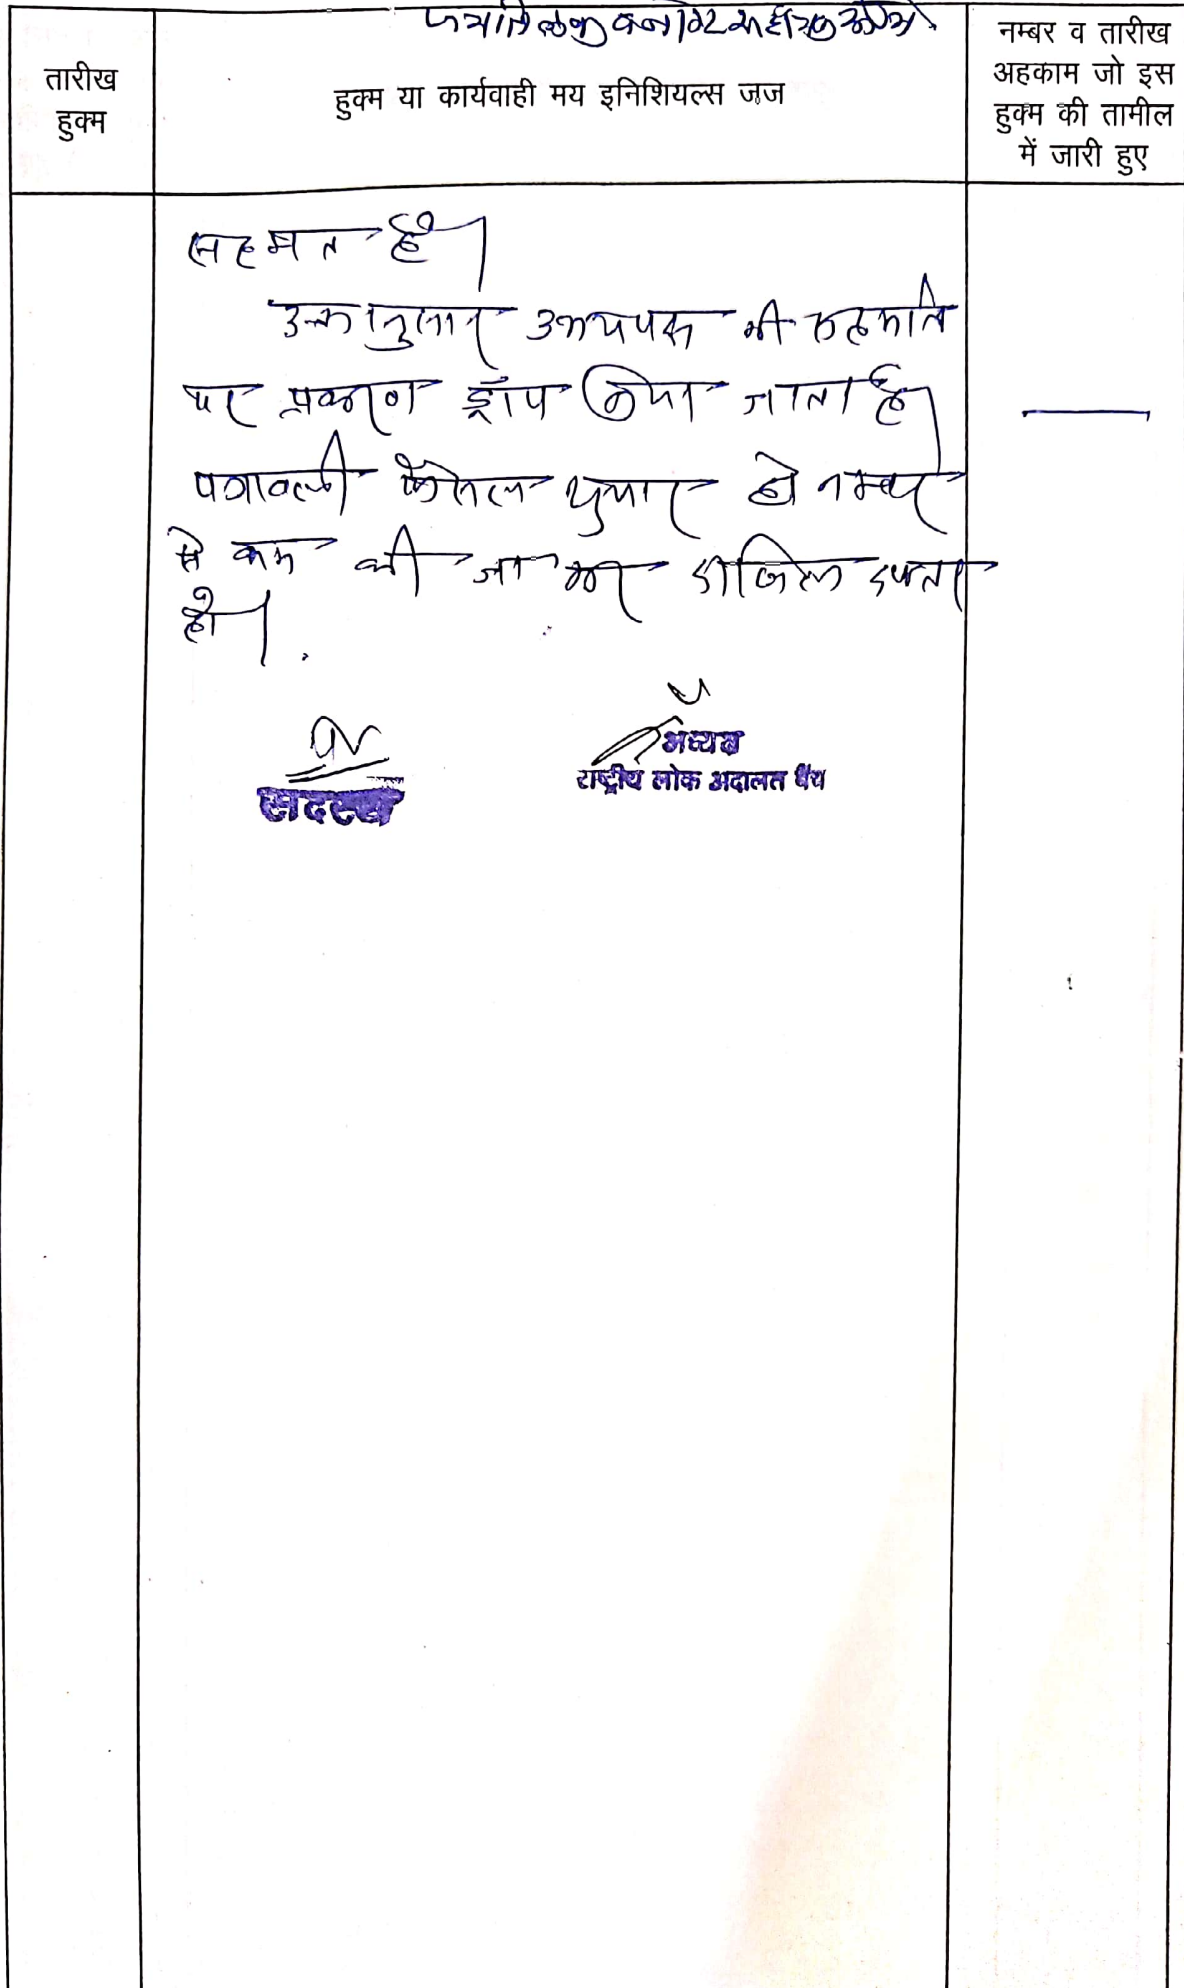 तारीख
हुक्म
हुक्म या कार्यवाही मय इनिशियल्स जज
नम्बर व तारीख
अहकाम जो इस
हुक्म की तामील
में जारी हुए
सहमत है।
उक्तानुसार उभयपक्ष की सहमति
पर प्रकरण ड्रॉप किया जाता है।
पत्रावली फैसल शुमार हो नम्बर
से कम की जाकर दाखिल दफ्तर
हो।
सदस्य
अध्यक्ष
राष्ट्रीय लोक अदालत बैंच